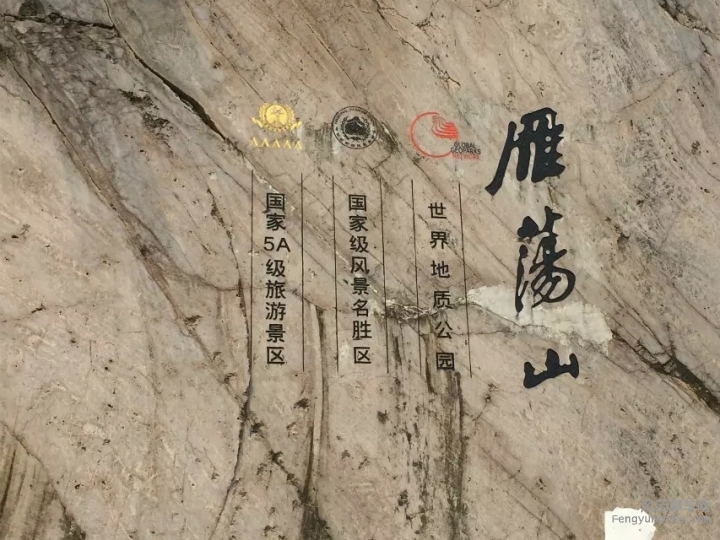 雁荡山
世界地质公园
国家级风景名胜区
国家5A级旅游景区
GLOBAL
GEOPARKS
NETWORK
AAAAA